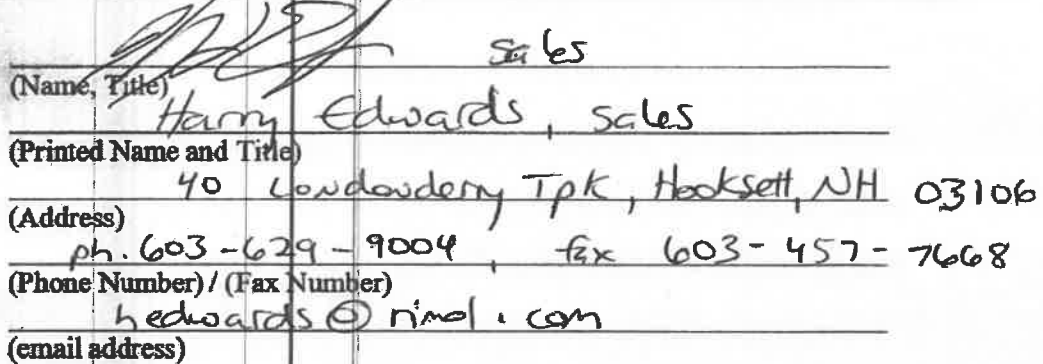 sales
(Name, Title)
Harry Edwards, sales
(Printed Name and Title)
40 Londonderry Tpk, Hooksett, NH 03106
(Address)
ph. 603-629-9004, fax 603-457-7668
(Phone Number) / (Fax Number)
hedwards@rimol.com
(email address)